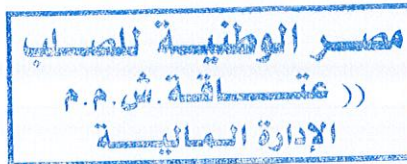 مصر الوطنية للصلب
(( عتاقة . ش.م.م
الإدارة المالية